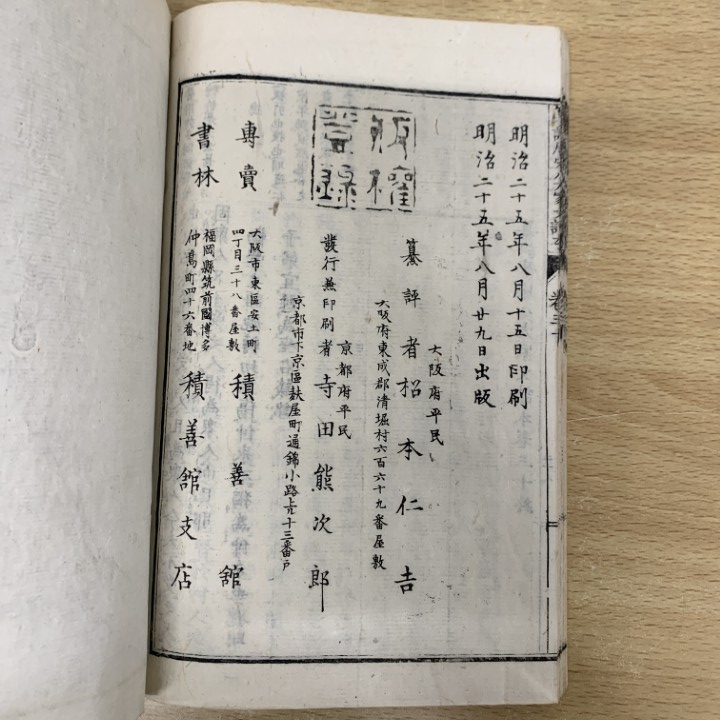 明治二十五年八月十五日印刷
明治二十五年八月廿九日出版
版權登錄
大阪府平民
纂評者 松本仁吉
大阪府東成郡清堀村六百六十九番屋敷
京都府平民
發行兼印刷者 寺田熊次郎
京都市下京區麩屋町通錦小路上ル十三番戸
專賣
大阪市東區安土町
四丁目三十八番屋敷
積善館
書林
福岡縣筑前國博多
仲島町四十六番地
積善舘支店